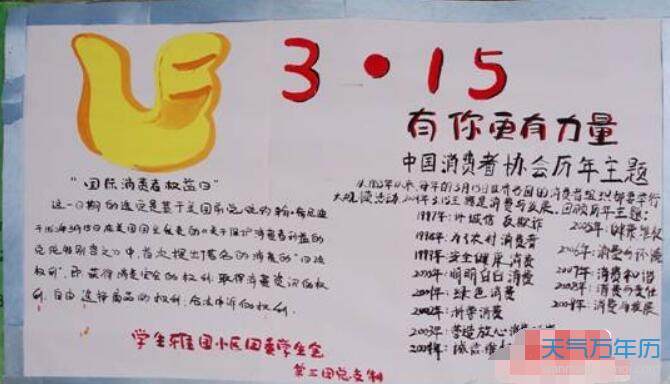 3·15
有你更有力量
中国消费者协会历年主题
"国际消费者权益日"
这一日期的选定是基于美国前总统约翰·肯尼迪
于1962年3月15日在美国国会发表的《关于保护消费者利益的
总统特别咨文》中,首次提出了著名的消费者的"四项
权利",即获得消费安全的权利,取得消费资讯的权
利,自由选择商品的权利,合法申诉的权利。
学生
小区团委学生会
从1983年以来,每年的3月15日
大规模活动
主题是消费与发展。回顾历年主题:
1997年:讲诚信 反欺诈
1998年:为农村消费者
1999年:安全健康消费
2000年:明明白白消费
2001年:绿色消费
2002年:科学消费
2003年:营造放心消费
2004年:诚信·维权
2005年:健康·维权
2006年:消费与环境
2007年:消费和谐
2008年:消费与责任
2009年:消费与发展
天气万年历